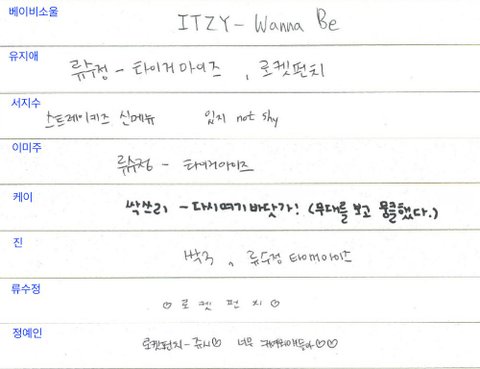 베이비소울
ITZY - Wanna Be
유지애
류수정 - 타이거 아이즈 , 로켓펀치
서지수
스트레이키즈 신메뉴 있지 not shy
이미주
류수정 - 타이거아이즈
케이
싹쓰리 - 다시여기바닷가! (무대를 보고 뭉클했다.)
진
류수정 타이거아이즈
류수정
♡ 로 켓 펀 치 ♡
정예인
로켓펀치 - 쥬시♡ 너무 귀여워